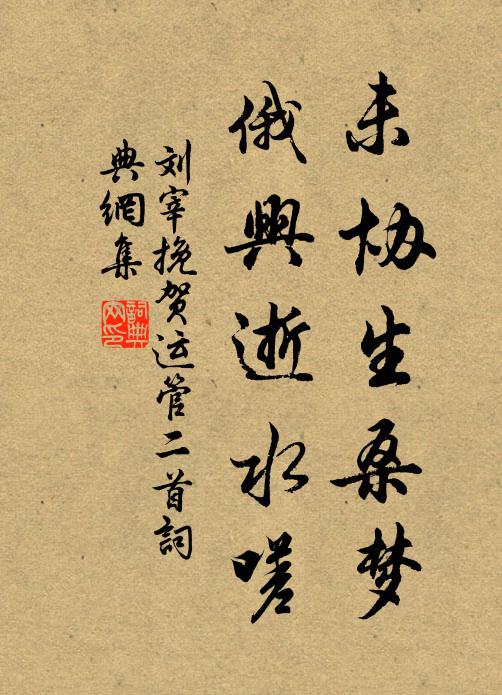 未协生桑梦
俄興逝水嗟
刘宰挽贺运管二首詞
典網集
詞典网印